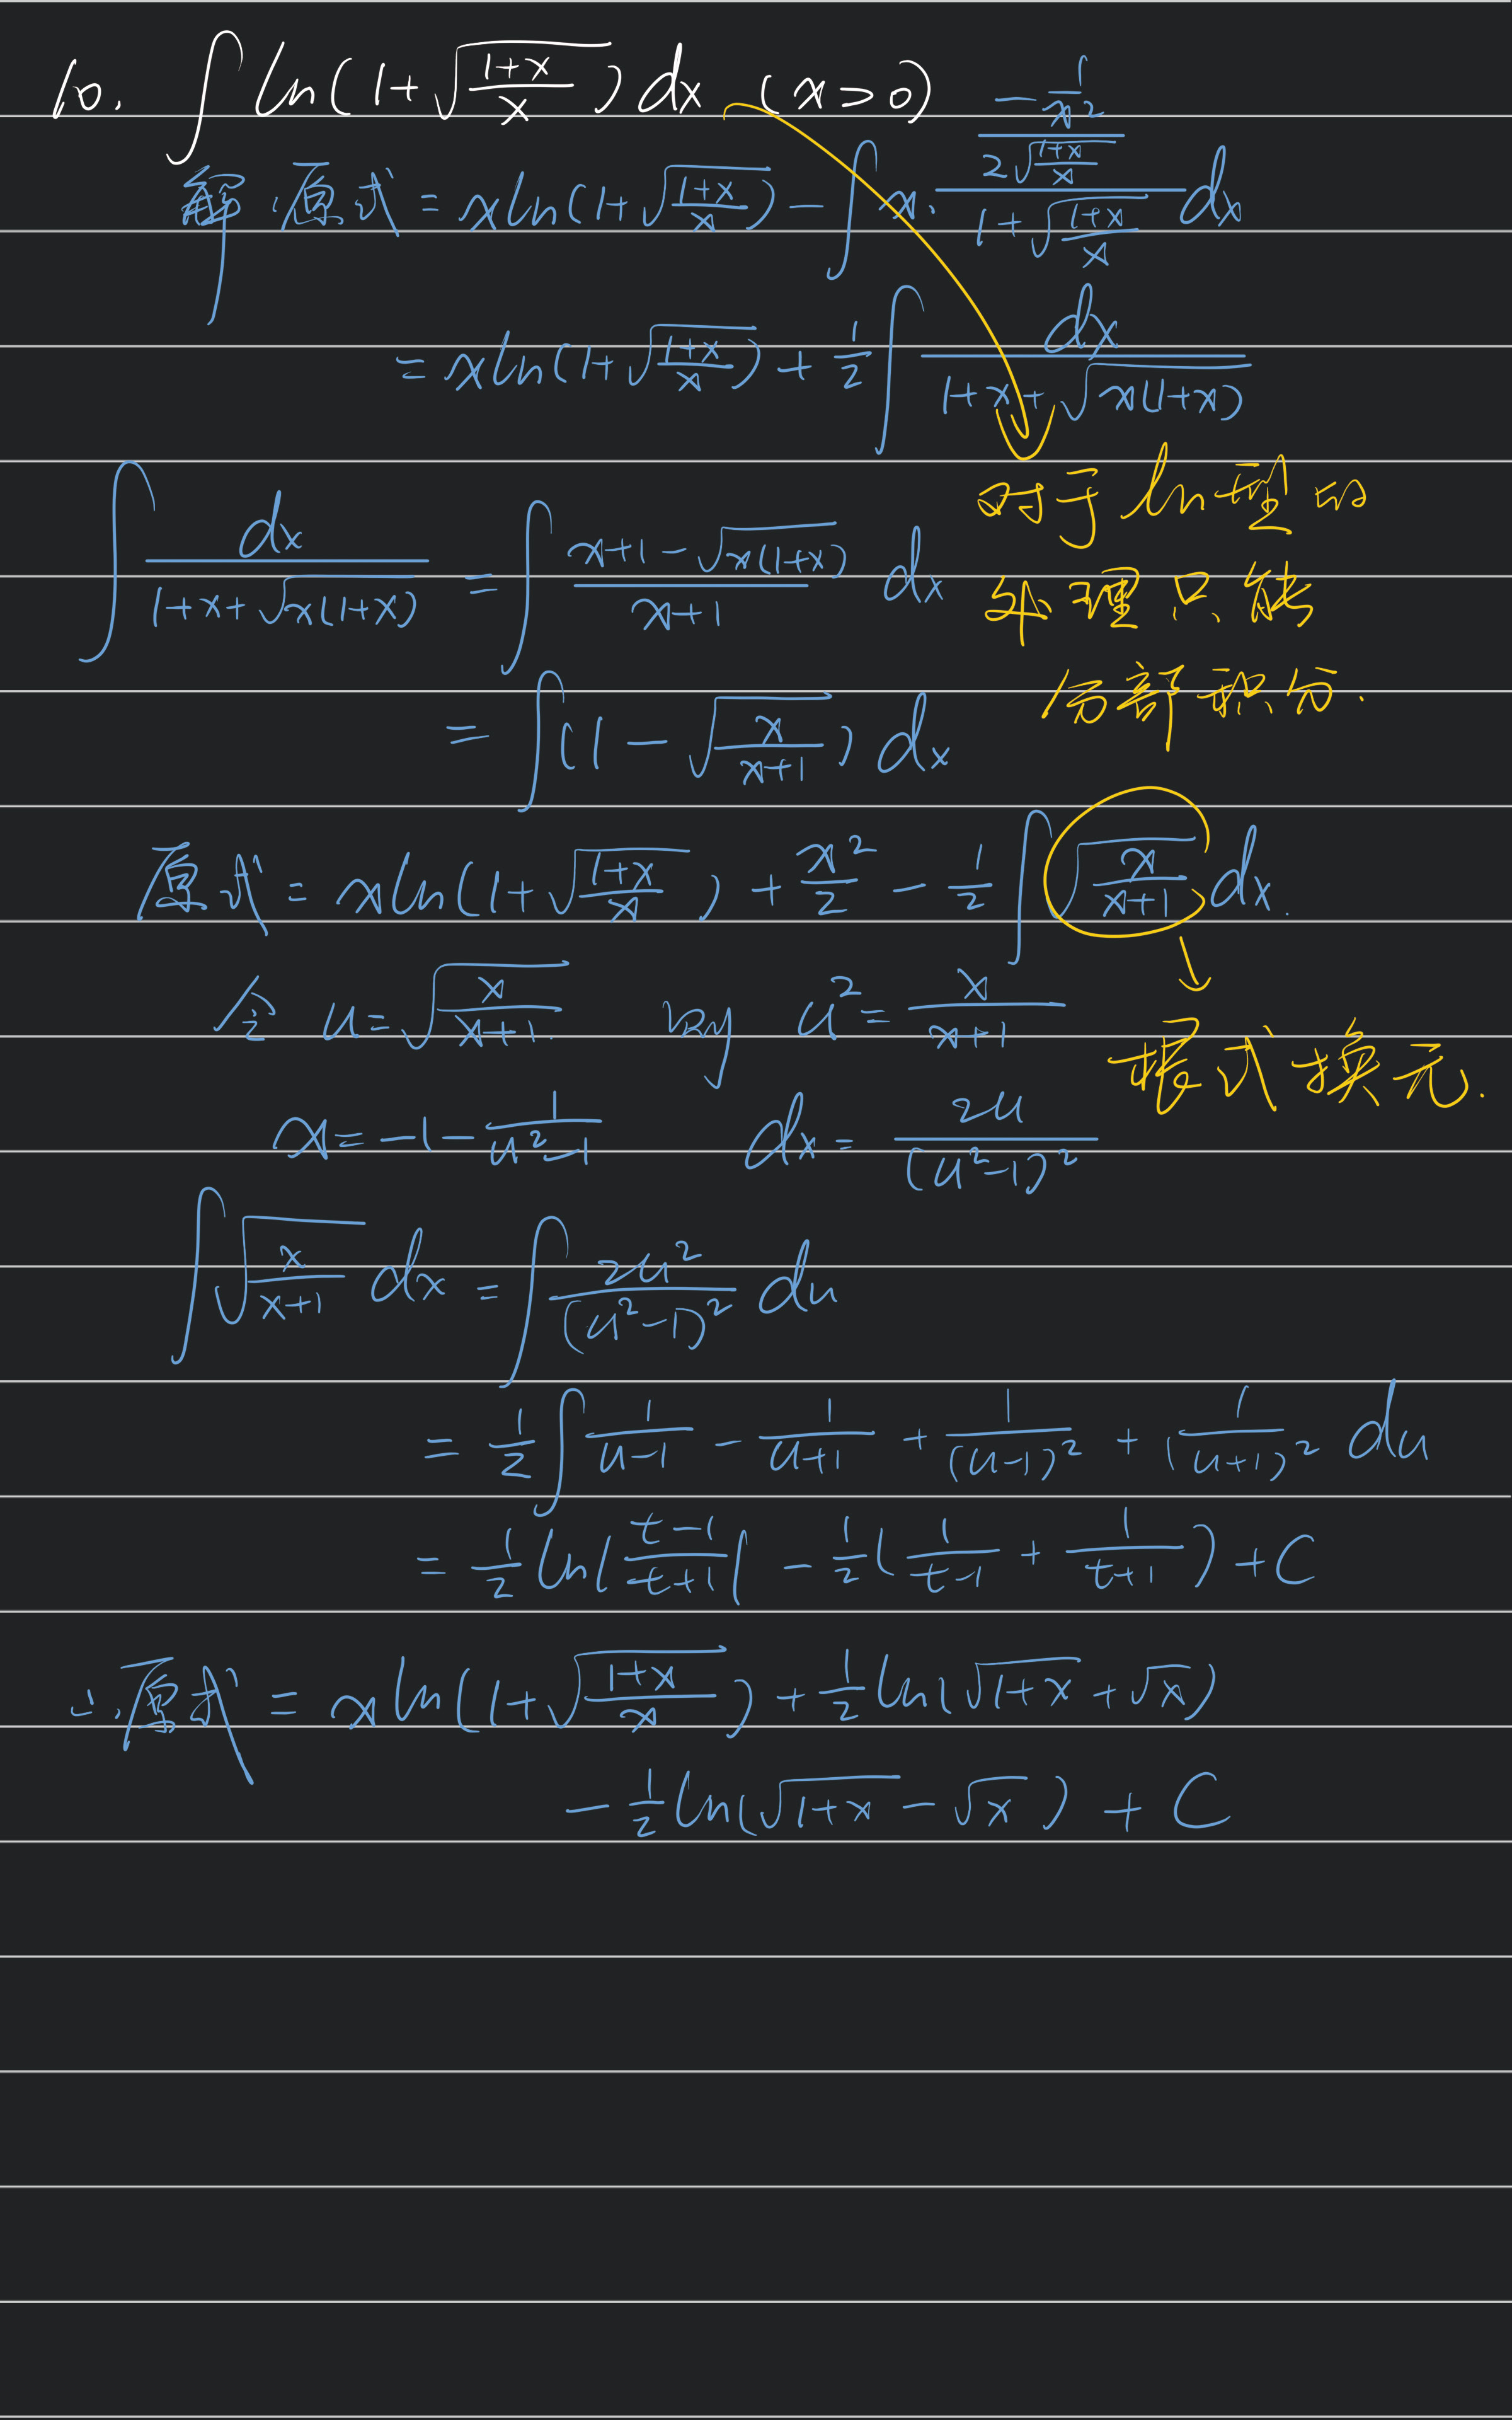 10. ∫ ln(1+√((1+x)/x)) dx (x>0)
解 : 原式 = x ln(1+√((1+x)/x)) − ∫ x · ((−1/x²)/(2√((1+x)/x)))/(1+√((1+x)/x)) dx
= x ln(1+√((1+x)/x)) + 1/2 ∫ dx/(1+x+√(x(1+x)))
对于 ln 型的
处理只能
分部积分.
∫ dx/(1+x+√(x(1+x))) = ∫ (x+1−√(x(1+x)))/(x+1) dx
= ∫ (1 − √(x/(x+1))) dx
原式 = x ln(1+√((1+x)/x)) + x²/2 − 1/2 ∫ √(x/(x+1)) dx.
根式换元.
令 u = √(x/(x+1)) 则 u² = x/(x+1)
x = −1 − 1/(u²−1) dx = 2u/(u²−1)²
∫ √(x/(x+1)) dx = ∫ 2u²/(u²−1)² du
= 1/2 ∫ 1/(u−1) − 1/(u+1) + 1/(u−1)² + 1/(u+1)² du
= 1/2 ln|(t−1)/(t+1)| − 1/2 (1/(t−1) + 1/(t+1)) + C
∴ 原式 = x ln(1+√((1+x)/x)) + 1/2 ln(√(1+x) + √x)
− 1/2 ln(√(1+x) − √x) + C